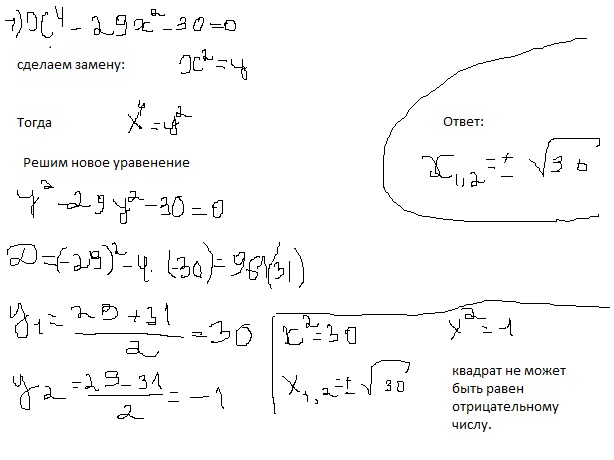 7) x⁴ - 29x² - 30 = 0
сделаем замену: x² = y
Тогда x⁴ = y²
Решим новое уравенение
y² - 29y² - 30 = 0
D = (-29)² - 4 · (-30) = 961 (31)
y₁ = (29 + 31)/2 = 30
y₂ = (29 - 31)/2 = -1
x² = 30
x₁,₂ = ± √30
x² = -1
квадрат не может
быть равен
отрицательному
числу.
Ответ:
x₁,₂ = ± √30